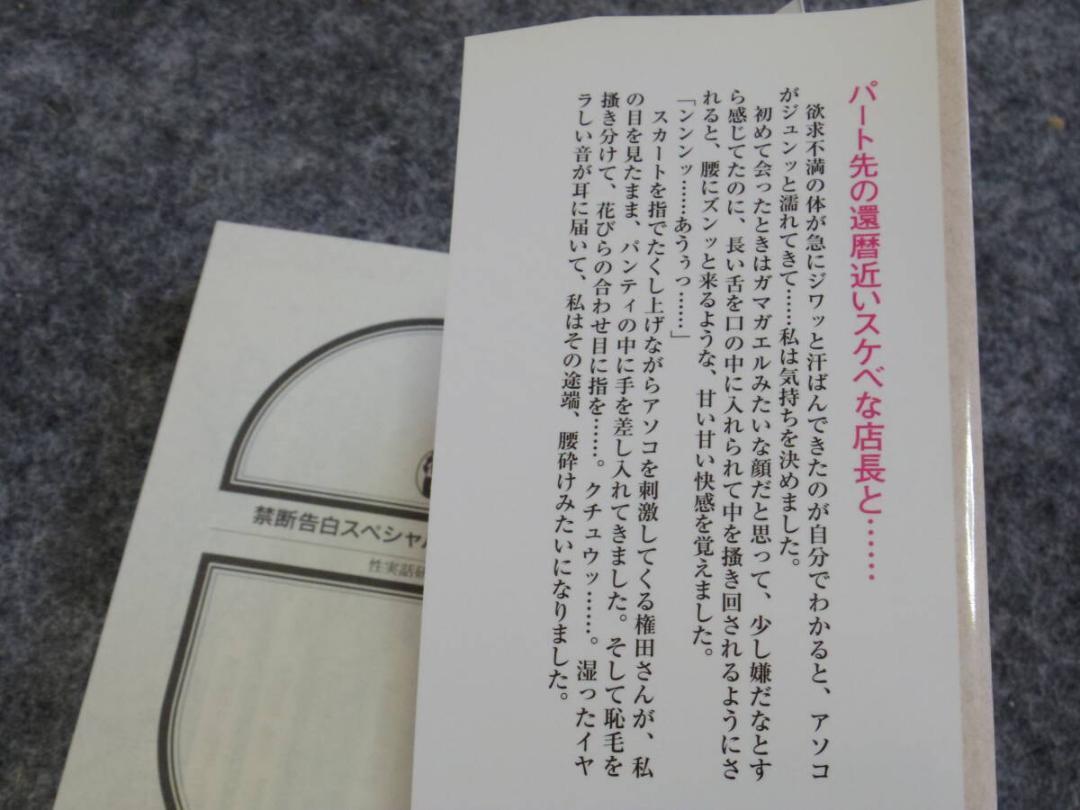 パート先の還暦近いスケベな店長と……
欲求不満の体が急にジワッと汗ばんできたのが自分でわかると、アソコ
がジュンッと濡れてきて……私は気持ちを決めました。
初めて会ったときはガマガエルみたいな顔だと思って、少し嫌だなとす
ら感じてたのに、長い舌を口の中に入れられて中を掻き回されるようにさ
れると、腰にズンッと来るような、甘い甘い快感を覚えました。
「ンンンッ……あうぅっ……」
スカートを指でたくし上げながらアソコを刺激してくる権田さんが、私
の目を見たまま、パンティの中に手を差し入れてきました。そして恥毛を
掻き分けて、花びらの合わせ目に指を……。クチュウッ……。湿ったイヤ
ラしい音が耳に届いて、私はその途端、腰砕けみたいになりました。
禁断告白スペシャル
性実話研